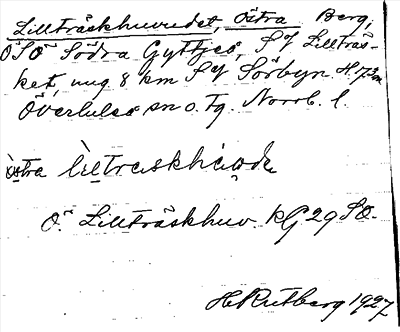 Lillträskhuvudet, Östra Berg,
OSO Södra Gyttjeå, S of Lillträs-
ket, ung 8 km S of Sörbyn. H.
Överluleå sn o. tg. Norrb. l.
östra
Ö. Lillträskhuv. KG 29 SO.
H Rutberg 1927